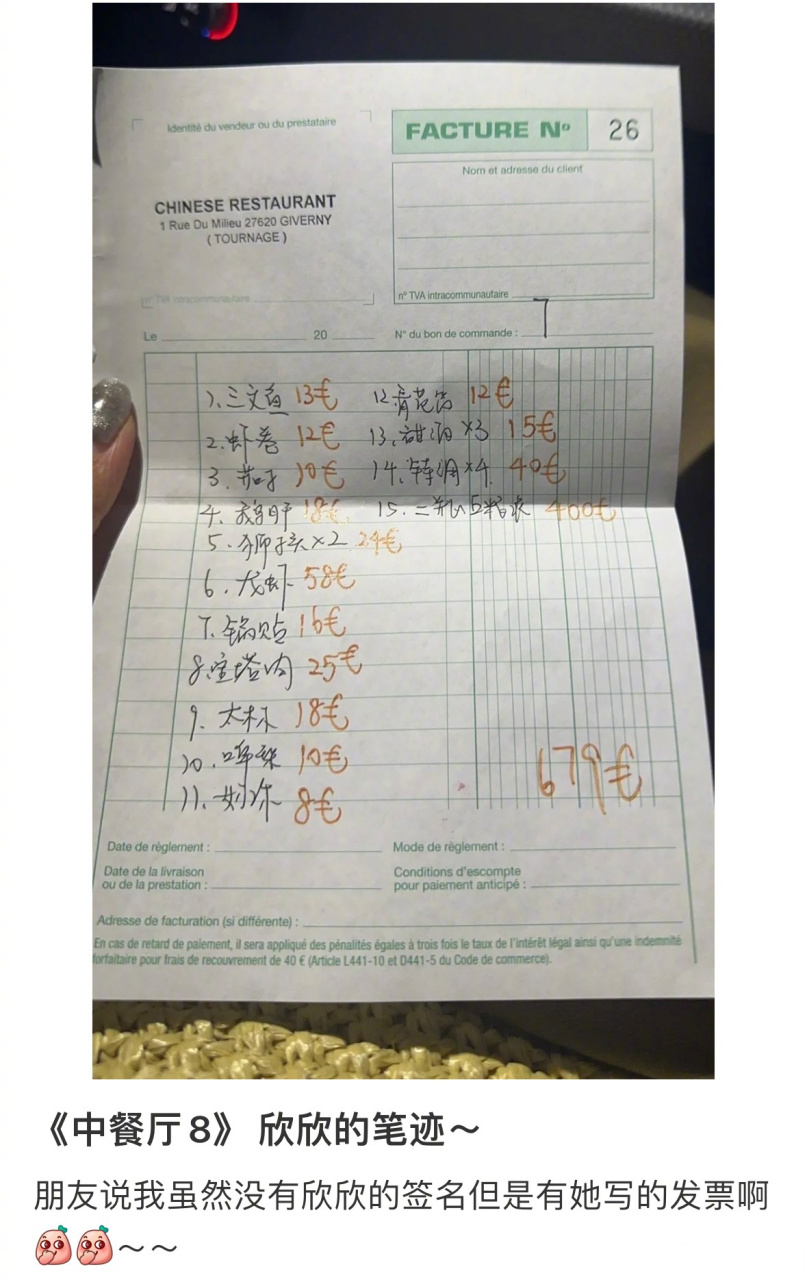 Identité du vendeur ou du prestataire
FACTURE Nº 26
Nom et adresse du client
CHINESE RESTAURANT
1 Rue Du Milieu 27620 GIVERNY
( TOURNAGE )
n° TVA intracommunautaire
n° TVA intracommunautaire
Le 20
N° du bon de commande : 7
1、三文鱼 13€
2、虾卷 12€
3、 10€
4、鹅肝 18€
5、狮子头×2 24€
6、龙虾 58€
7、锅贴 16€
8、宝塔肉 25€
9、 18€
10、 10€
11、 8€
12、 12€
13、甜酒×3 15€
14、 ×4 40€
15、二瓶五粮液 400€
679€
Date de règlement :
Mode de règlement :
Date de la livraison
ou de la prestation :
Conditions d'escompte
pour paiement anticipé :
Adresse de facturation (si différente) :
En cas de retard de paiement, il sera appliqué des pénalités égales à trois fois le taux de l'intérêt légal ainsi qu'une indemnité
forfaitaire pour frais de recouvrement de 40 € (Article L441-10 et D441-5 du Code de commerce).
《中餐厅8》 欣欣的笔迹～
朋友说我虽然没有欣欣的签名但是有她写的发票啊
～～